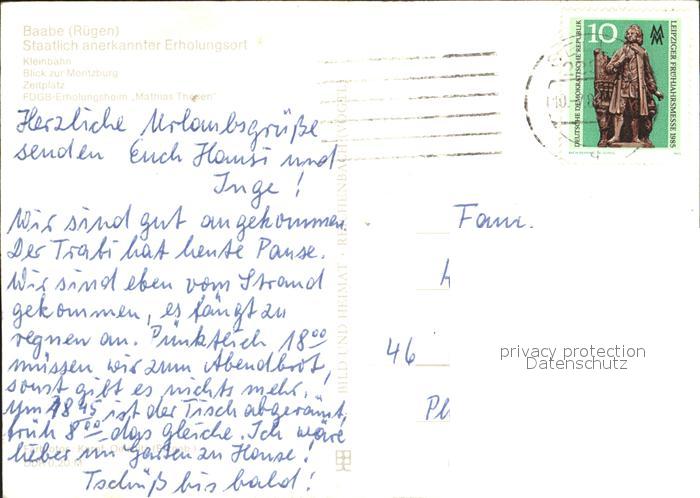 Baabe (Rügen)
Staatlich anerkannter Erholungsort
Kleinbahn
Blick zur Moritzburg
Zeltplatz
FDGB-Erholungsheim „Mathias Thesen"
Herzliche Urlaubsgrüße
senden Euch Hansi und
Inge!
Wir sind gut angekommen.
Der Trabi hat heute Pause.
Wir sind eben vom Strand
gekommen, es fängt zu
regnen an. Pünktlich 18⁰⁰
müssen wir zum Abendbrot,
sonst gibt es nichts mehr.
Um 18⁴⁵ ist der Tisch abgeräumt,
früh 8⁰⁰ das gleiche. Ich wäre
lieber im Garten zu Hause!
Tschüß bis bald!
BILD UND HEIMAT · REICHENBACH (VOGTL)
10
DEUTSCHE DEMOKRATISCHE REPUBLIK
LEIPZIGER FRÜHJAHRSMESSE 1985
Fam.
46
privacy protection
Datenschutz